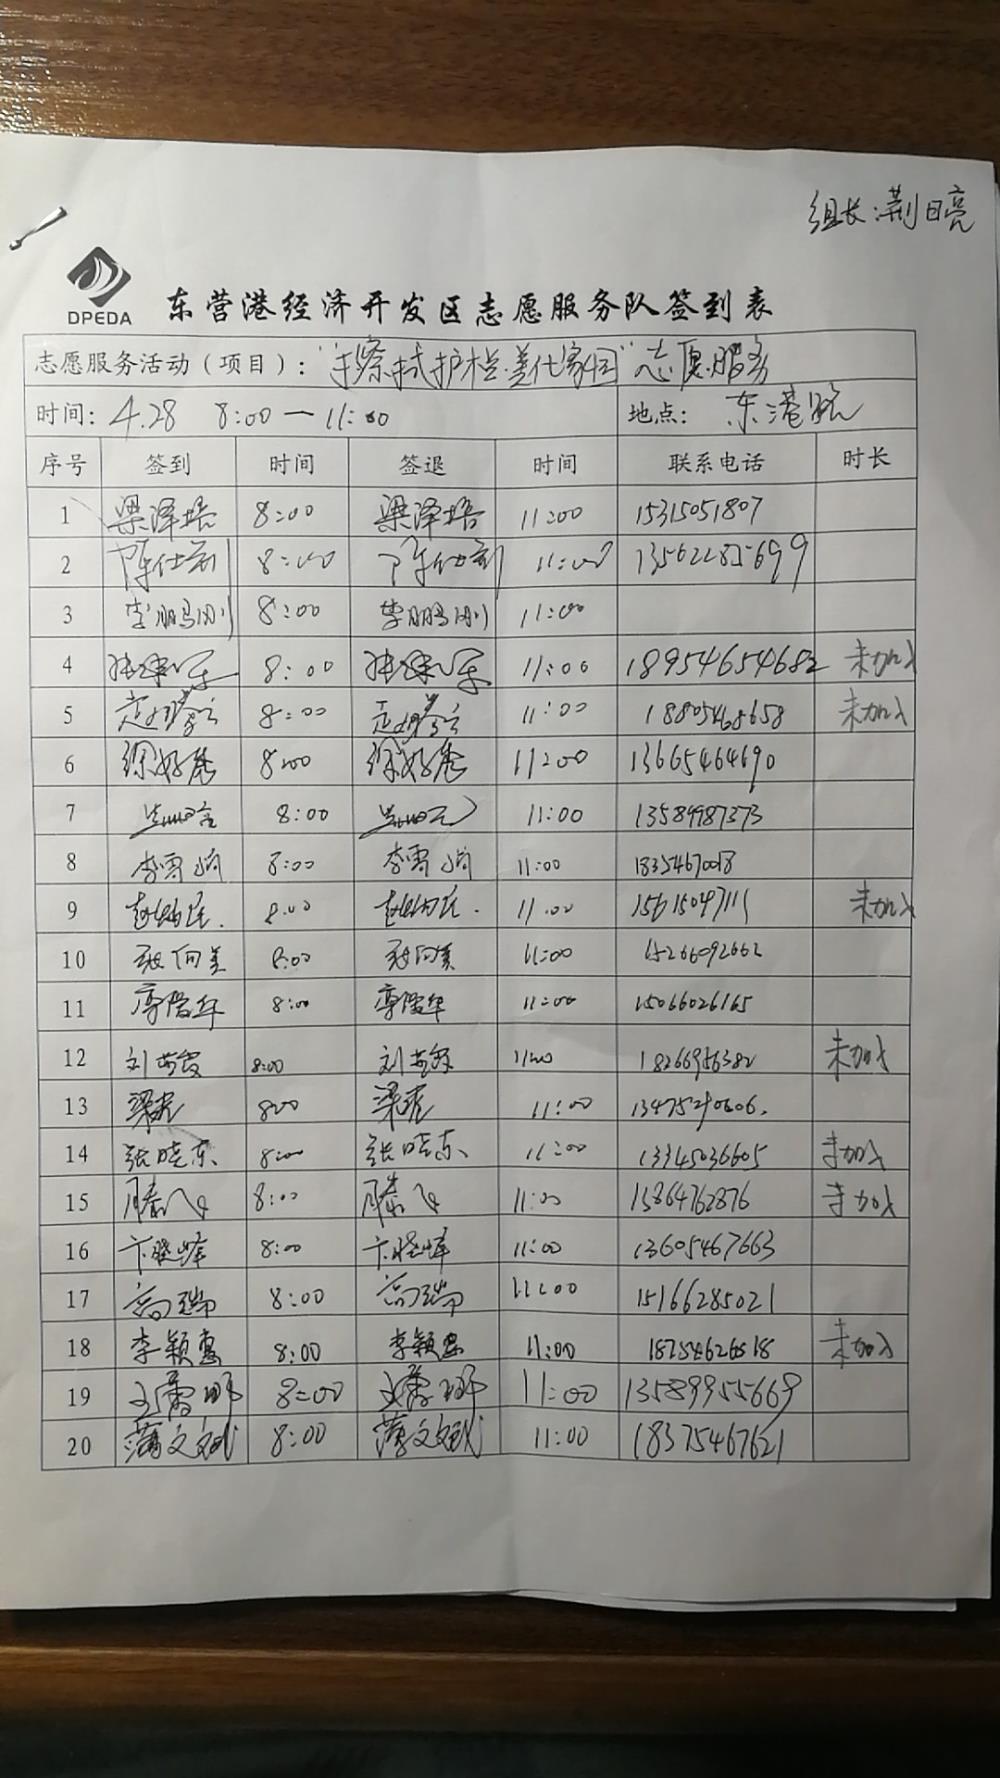 组长:荆日亮
DPEDA
东营港经济开发区志愿服务队签到表
志愿服务活动(项目): "擦拭护栏·美化家园"志愿服务
时间: 4.28 8:00—11:00 地点: 东港路
序号 签到 时间 签退 时间 联系电话 时长
1 梁泽培 8:00 梁泽培 11:00 15315051807
2 陈仕 8:00 陈仕 11:00 13562285699
3 李鹏刚 8:00 李鹏刚 11:00
4 8:00 11:00 18954654682 未加入
5 8:00 11:00 18805468658 未加入
6 徐好秀 8:00 徐好秀 11:00 13665464690
7 8:00 11:00 13589987373
8 李雪 8:00 李雪 11:00 18354670018
9 赵 8:00 赵 11:00 15615047111 未加入
10 张何美 8:00 张何美 11:00 15266092662
11 8:00 11:00 15066026165
12 刘 8:00 刘 11:00 18266956382 未加入
13 梁虎 8:00 梁虎 11:00 13475290606.
14 张晓东 8:00 张晓东 11:00 13345036605 未加入
15 滕飞 8:00 滕飞 11:00 13864762876 未加入
16 卞晓峰 8:00 卞晓峰 11:00 13605467663
17 高瑞 8:00 高瑞 11:00 15166285021
18 李颖惠 8:00 李颖惠 11:00 18254626518 未加入
19 王娜 8:00 王娜 11:00 13589955669
20 薄文斌 8:00 薄文斌 11:00 18375467621